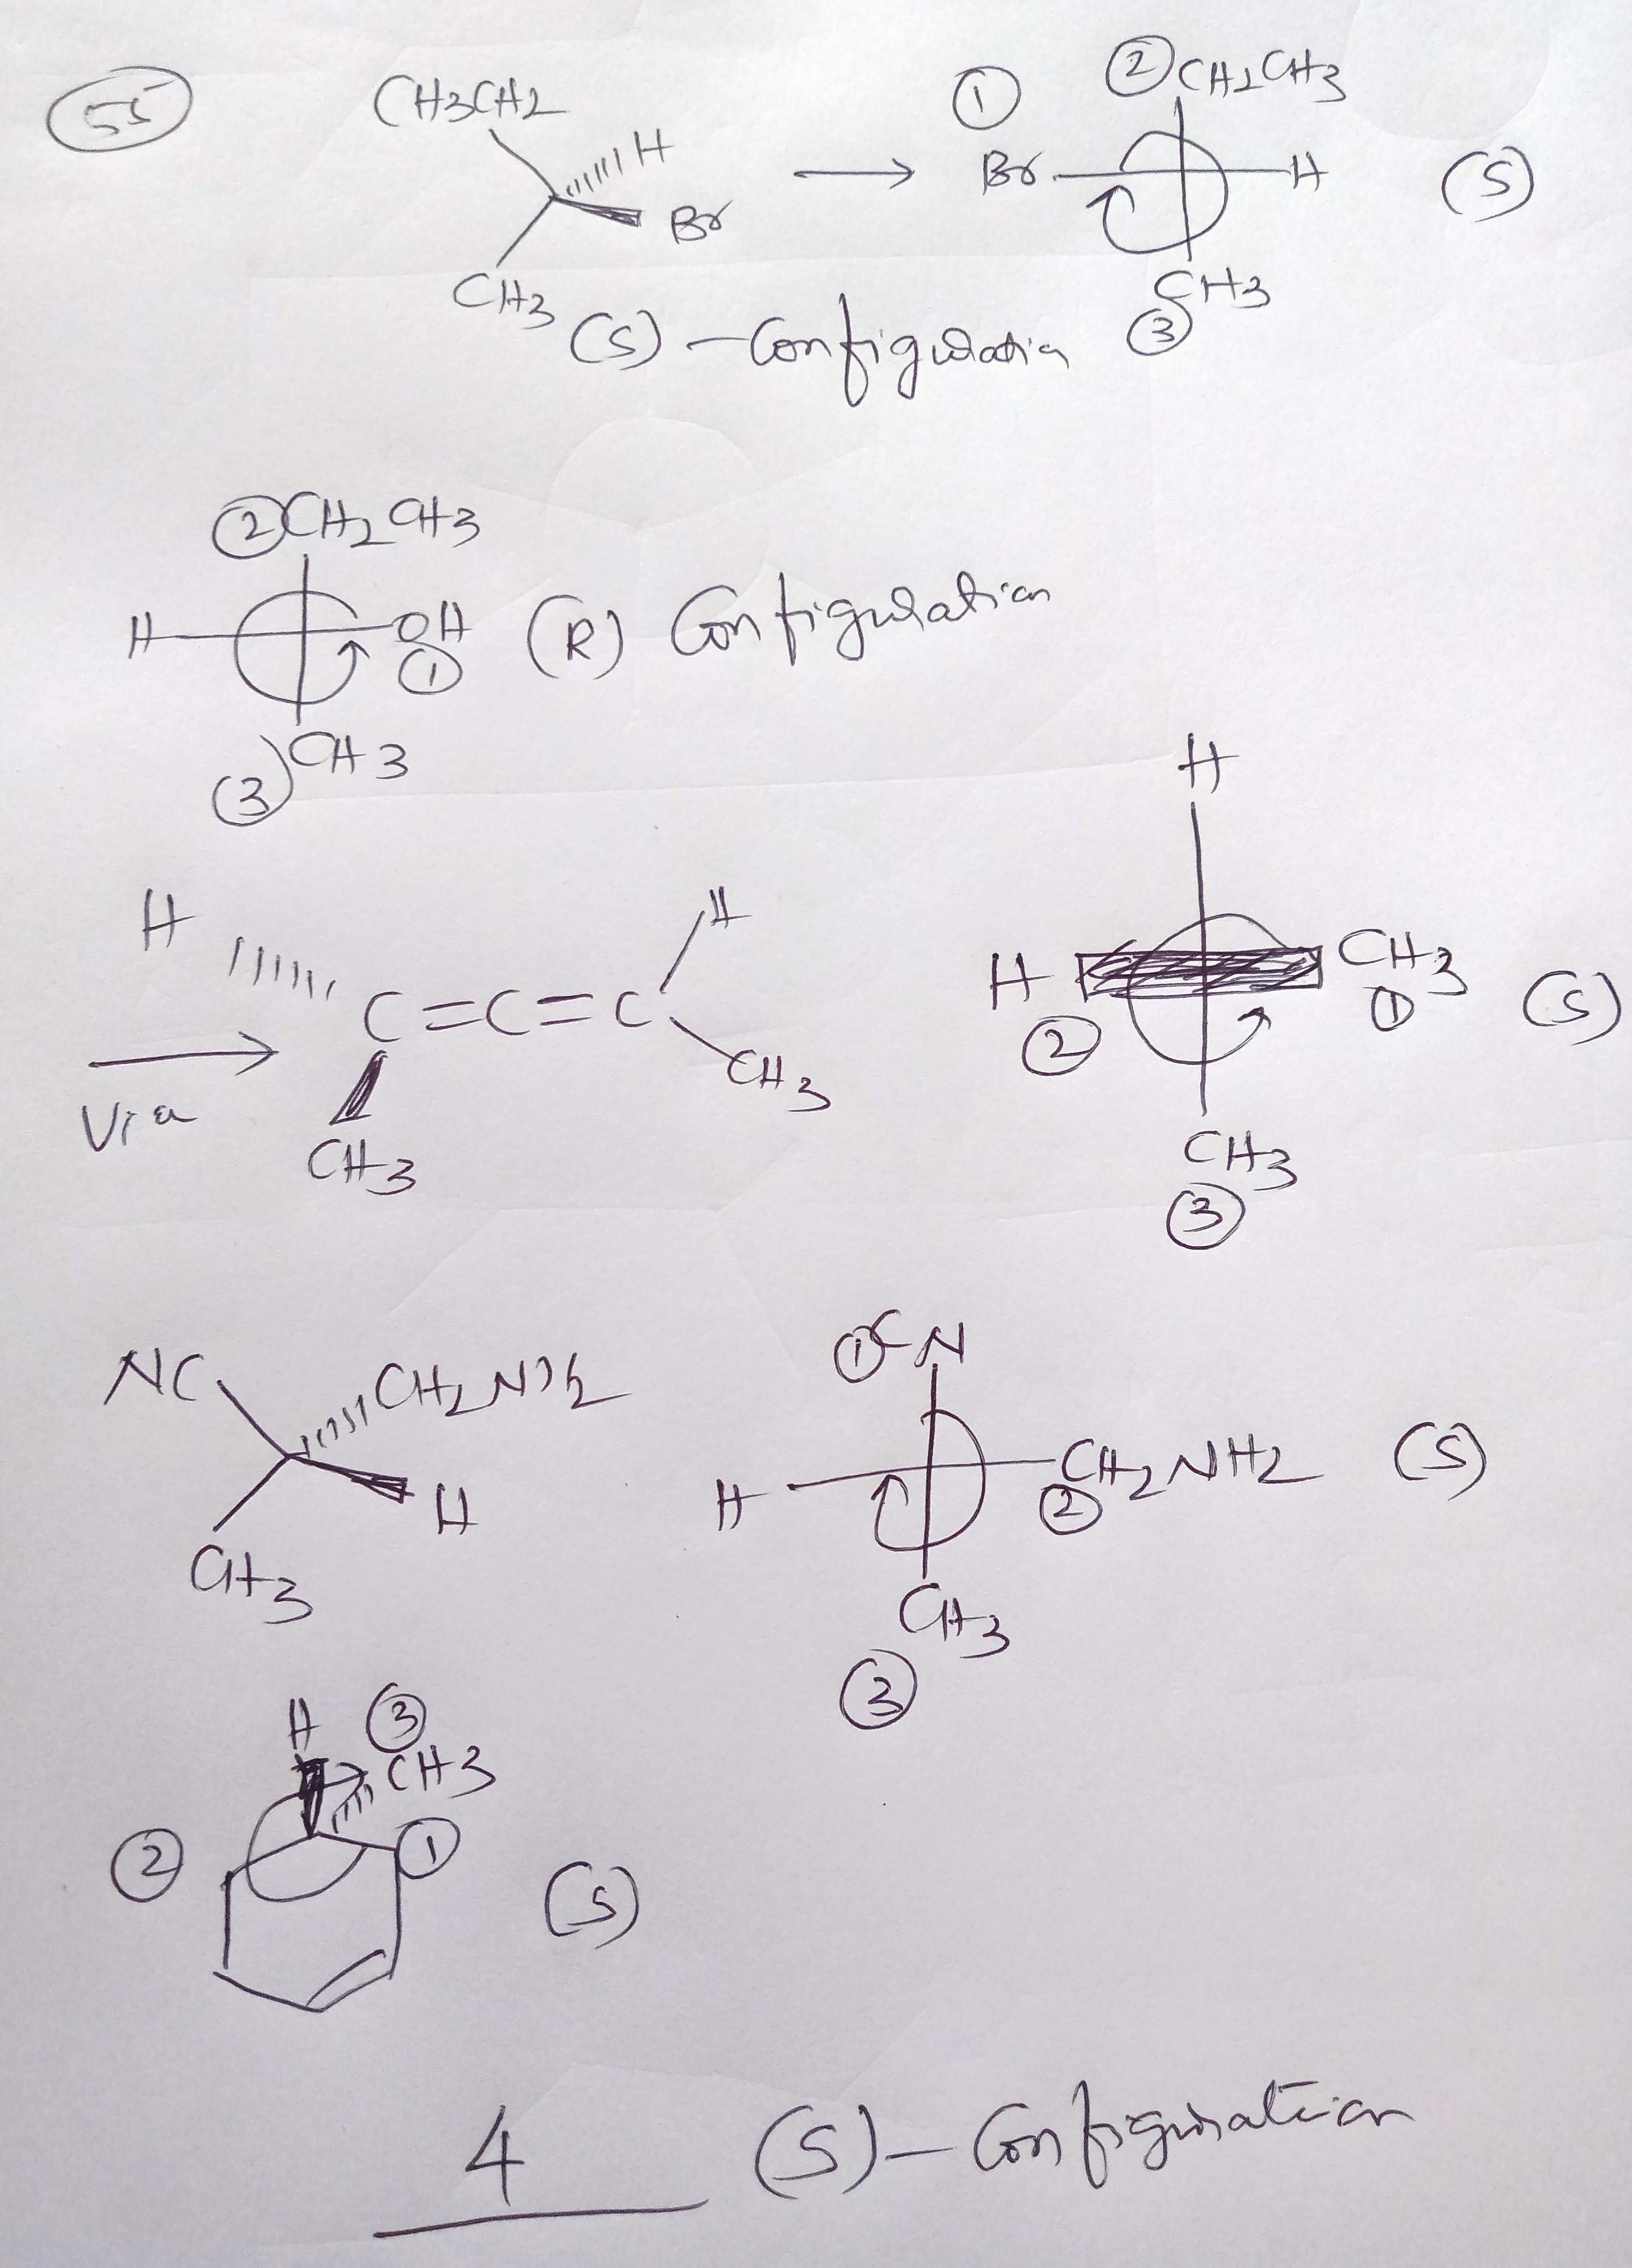 55
CH3CH2
H
Br
CH3
(S) - Configuration
→
①
② CH2CH3
Br
H
(S)
CH3
③
② CH2CH3
H
OH
①
(R) Configuration
③ CH3
Via
H
C=C=C
H
CH3
CH3
H
H
②
CH3
①
(S)
CH3
③
NC
CH2NH2
H
CH3
① CN
H
CH2NH2
②
(S)
CH3
③
H ③
CH3
②
①
(S)
4 (S)- Configuration